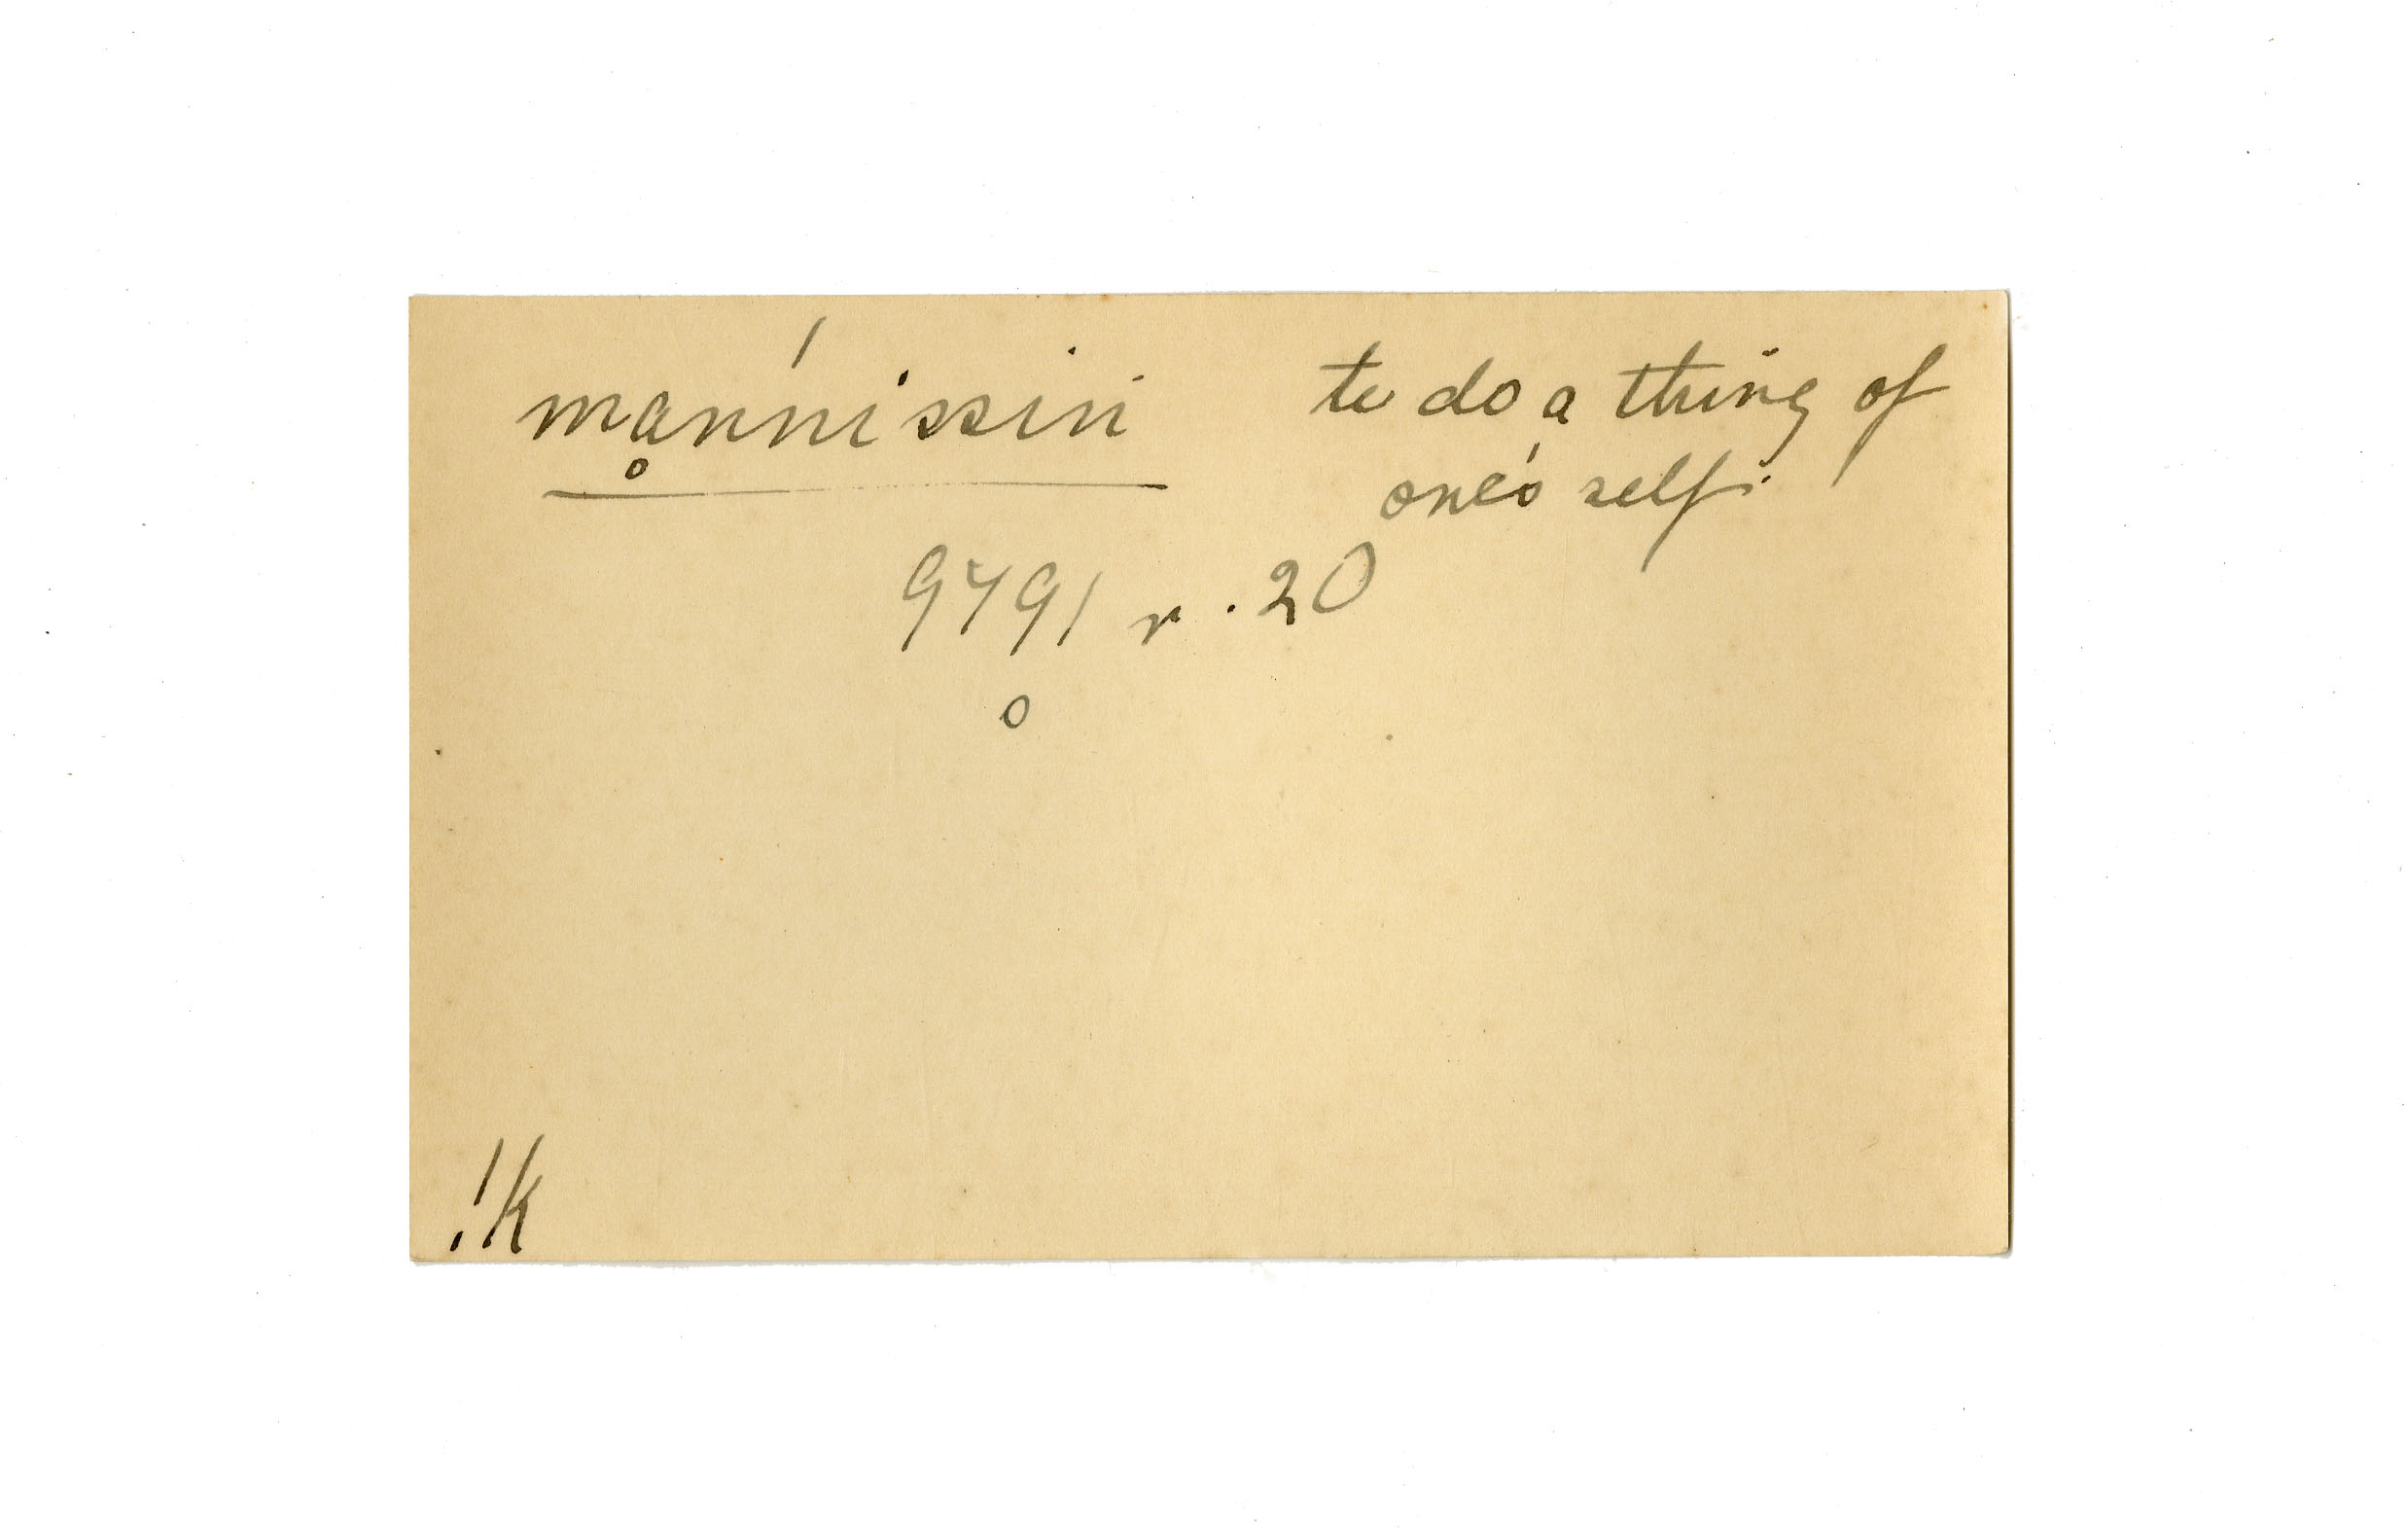 mḁnníssiń to do a thing of
one's self.
9791 r. 20
o
!k